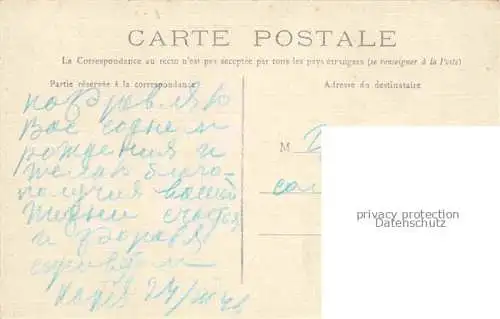 CARTE POSTALE
La Correspondance au recto n'est pas acceptée par tous les pays étrangers (se renseigner à la Poste)
Partie réservée à la correspondance
Adresse du destinataire
поздравляю
Вас с днем
рождения и
желаю благо-
получия вашей
жизни счастья
и здоровья
M
privacy protection
Datenschutz